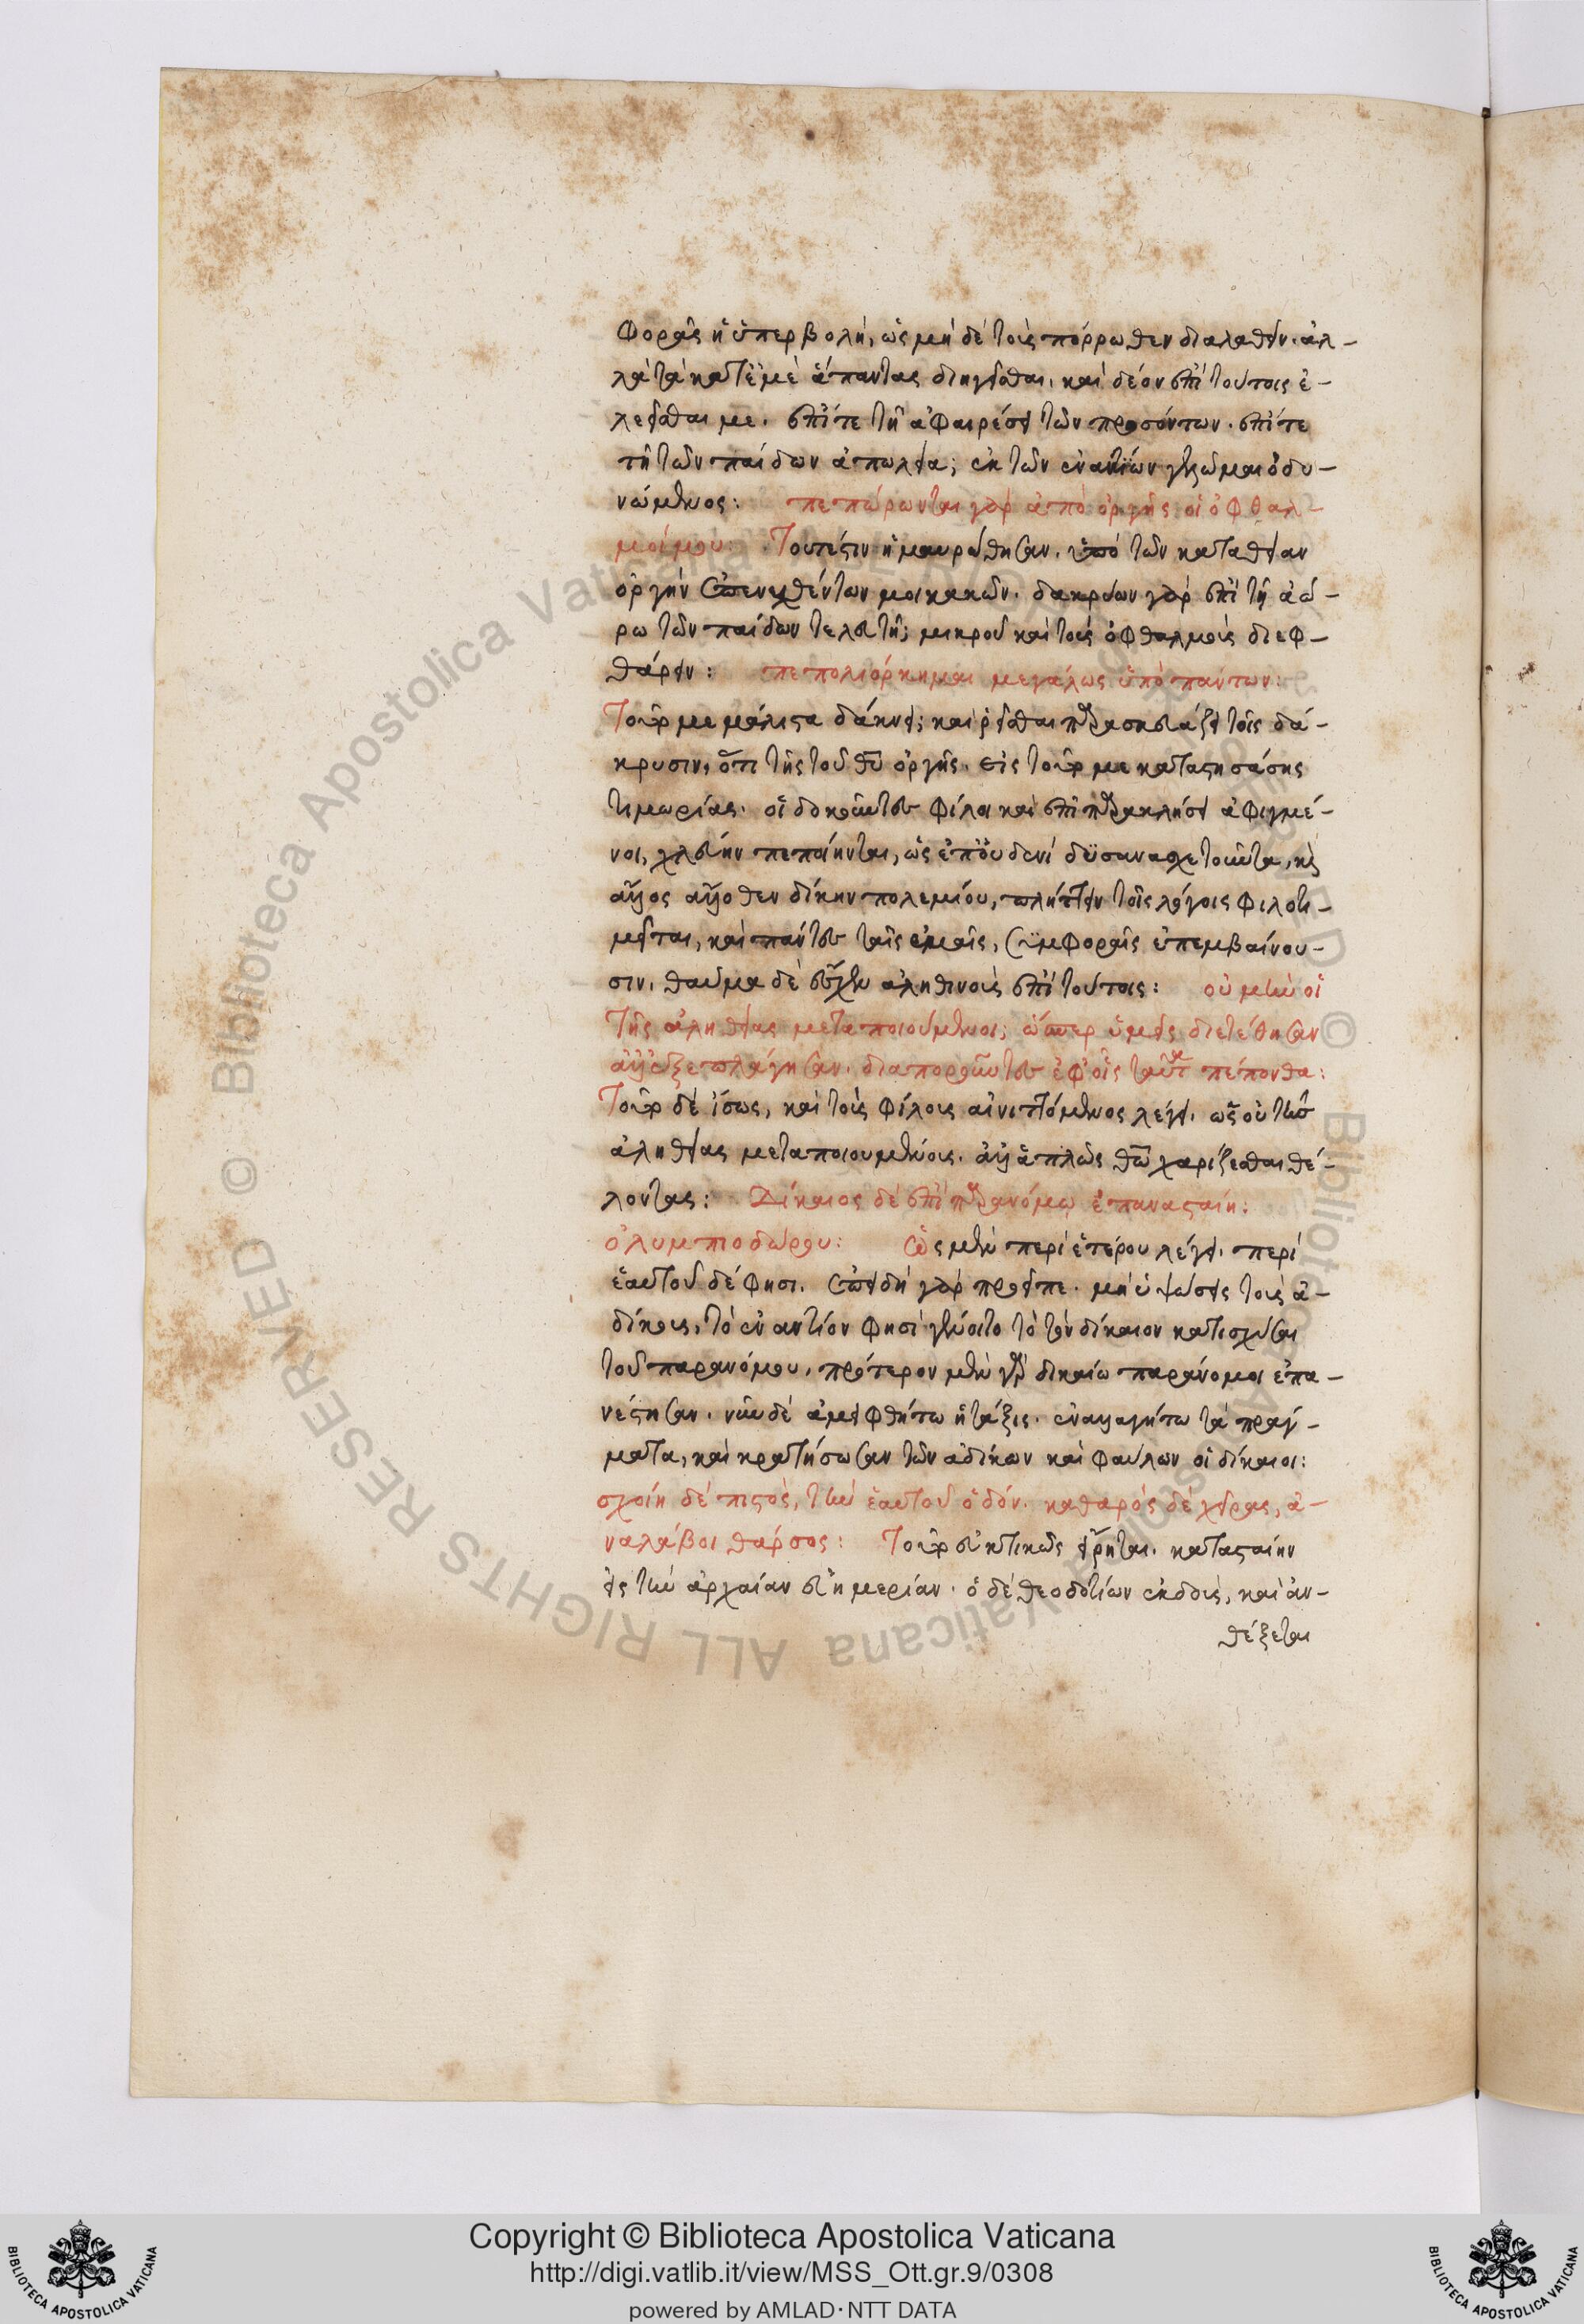 φορᾶς ἡ ὑπερβολὴ, ὡς μὴ δὲ τοὺς πόρρωθεν διαλαθεῖν. ἀλ-
λὰ τὰ κατ' ἐμὲ ἅπαντας διηγεῖσθαι. καὶ δέον ἐπὶ τούτοις ἐ-
λεεῖσθαι με. ἐπί τε τῇ ἀφαιρέσει τῶν προσόντων. ἐπί τε
τῇ τῶν παίδων ἀπωλεία; ἐκ τῶν ἐναντίων γίνομαι ὀδυ-
νώμενος: πεπώρωνται γὰρ ἀπὸ ὀργῆς οἱ ὀφθαλ-
μοί μου: Τουτέστιν ἠμαυρώθησαν. ὑπὸ τῶν κατὰ θείαν
ὀργὴν ἐπενεχθέντων μοι κακῶν. δακρύων γὰρ ἐπὶ τῇ ἀώ-
ρω τῶν παίδων τελευτῇ; μικροῦ καὶ τοὺς ὀφθαλμοὺς διεφ-
θάρην: πεπολιόρκημαι μεγάλως ὑπὸ πάντων:
Τοῦτο με μάλιστα δάκνει; καὶ ῥεῖσθαι παρασκευάζει τοῖς δά-
κρυσιν, ὅτι τῆς τοῦ θυ ὀργῆς. εἰς τοῦτο με καταστησάσης
τιμωρίας. οἱ δοκοῦντες φίλοι καὶ ἐπὶ παρακλήσει ἀφιγμέ-
νοι, χλεύην πεποίηνται, ὡς ἐπ' οὐδενὶ δυσανασχετοῦντα, καὶ
ἄλλος ἄλλοθεν δίκην πολεμίου, πλήττειν τοῖς λόγοις φιλοτι-
μεῖται, καὶ πάντες ταῖς ἐμαῖς, συμφοραῖς ἐπεμβαίνου-
σιν. θαῦμα δὲ εἶχεν ἀληθινοὺς ἐπὶ τούτοις: οὐ μὴν οἱ
τῆς ἀληθείας μεταποιούμενοι; ὥσπερ ὑμεῖς διετέθησαν
ἀλλ' ἐξεπλάγησαν. διαποροῦντες ἐφ' οἷς ταῦτα πέπονθα:
Τοῦτο δὲ ἴσως, καὶ τοὺς φίλους αἰνιττόμενος λέγει. ὡς οὐ τῆς
ἀληθείας μεταποιουμένους. ἀλλ' ἁπλῶς θῶ χαρίζεσθαι θέ-
λοντας: Δίκαιος δὲ ἐπὶ παρανόμῳ ἐπανασταίη:
ὀλυμπιοδώρου: Ὡς μὲν περὶ ἑτέρου λέγει. περὶ
ἑαυτοῦ δέ φησι. ἐπειδὴ γὰρ προεῖπε. μὴ ὑψώσεις τοὺς ἀ-
δίκους, τὸ ἐναντίον φησὶ γένοιτο τὸ τὸν δίκαιον κατισχύσαι
τοῦ παρανόμου. πρότερον μὲν γὰρ δικαίω παράνομοι ἐπα-
νέστησαν. νῦν δὲ ἀμειφθήτω ἡ τάξις. ἐναλλαγήτω τὰ πράγ-
ματα, καὶ κρατήσωσαν τῶν ἀδίκων καὶ φαύλων οἱ δίκαιοι:
σχοίη δὲ πιστὸς, τὴν ἑαυτοῦ ὁδόν. καθαρὸς δὲ χεῖρας, ἀ-
ναλάβοι θάρσος: Τοῦτο εὐκτικῶς εἴρηται. κατασταίην
εἰς τὴν ἀρχαίαν εὐημερίαν. ὁ δὲ θεοδοτίων ἐκδοὺς, καὶ ἀν-
θέξεται
Copyright © Biblioteca Apostolica Vaticana
http://digi.vatlib.it/view/MSS_Ott.gr.9/0308
powered by AMLAD·NTT DATA